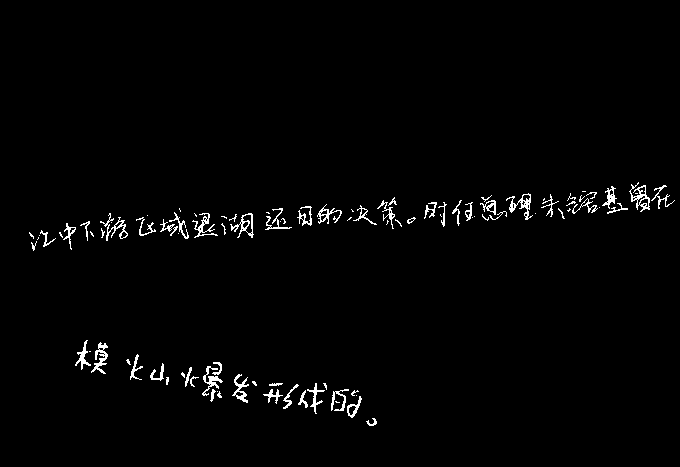 江中下游区域退湖还田的决策。时任总理朱镕基曾在
模火山爆发形成的。